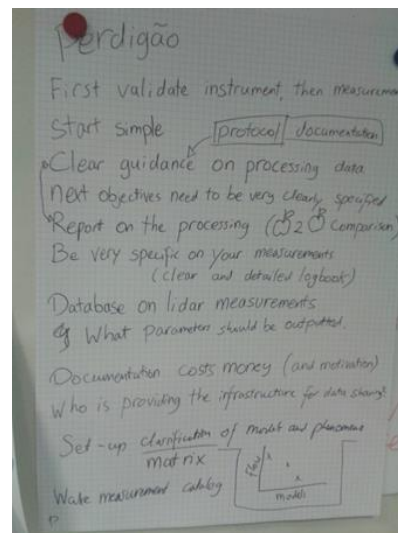 Perdigão
First validate instrument, then measuremen
Start simple protocol documentation
Clear guidance on processing data
next objectives need to be very clearly specified
Report on the processing ( 2 comparison)
Be very specific on your measurements
(clear and detailed logbook)
Database on lidar measurements
What parameters should be outputted.
Documentation costs money (and motivation)
Who is providing the infrastructure for data sharing?
Set-up classification of models and phenomena
matrix
models
Wake measurement catalog